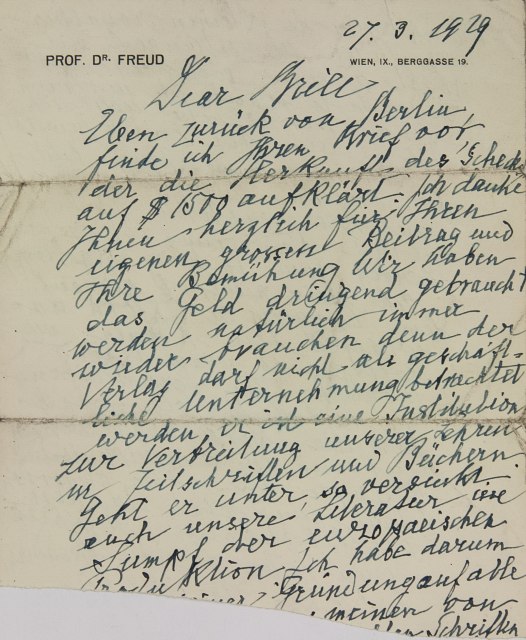 27. 3. 1929
PROF. DR. FREUD
WIEN, IX., BERGGASSE 19.
Dear Brill
Eben zurück von Berlin
finde ich Ihren Brief vor,
der die Herkunft des Schecks
auf $ 1500 aufklärt. Ich danke
Ihnen herzlich für Ihren
eigenen grossen Beitrag und
Ihre Bemühung Wir haben
das Geld dringend gebraucht
werden natürlich immer
wieder brauchen denn der
Verlag darf nicht als geschäft-
liche Unternehmung betrachtet
werden er ist eine Institution
zur Verbreitung unserer Lehren
in Zeitschriften und Büchern
Geht er unter, so versinkt
auch unsere Literatur im
Sumpf der europaeischen
Produktion Ich habe darum
Gründung auf alle
meinen von
Schriften